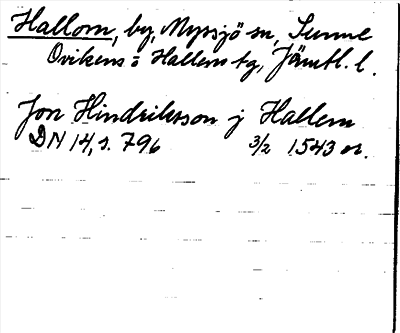 Hallom, by, Myssjö sn, Sunne
Ovikens o Hallens tg, Jämtl. l.
Jon Hindriksson j Hallem
DN 14, s. 796 3/2 1543 or.